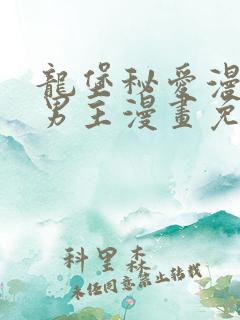 龍堡秘愛漫
男主漫畫免
科里森
未經同意禁止轉載